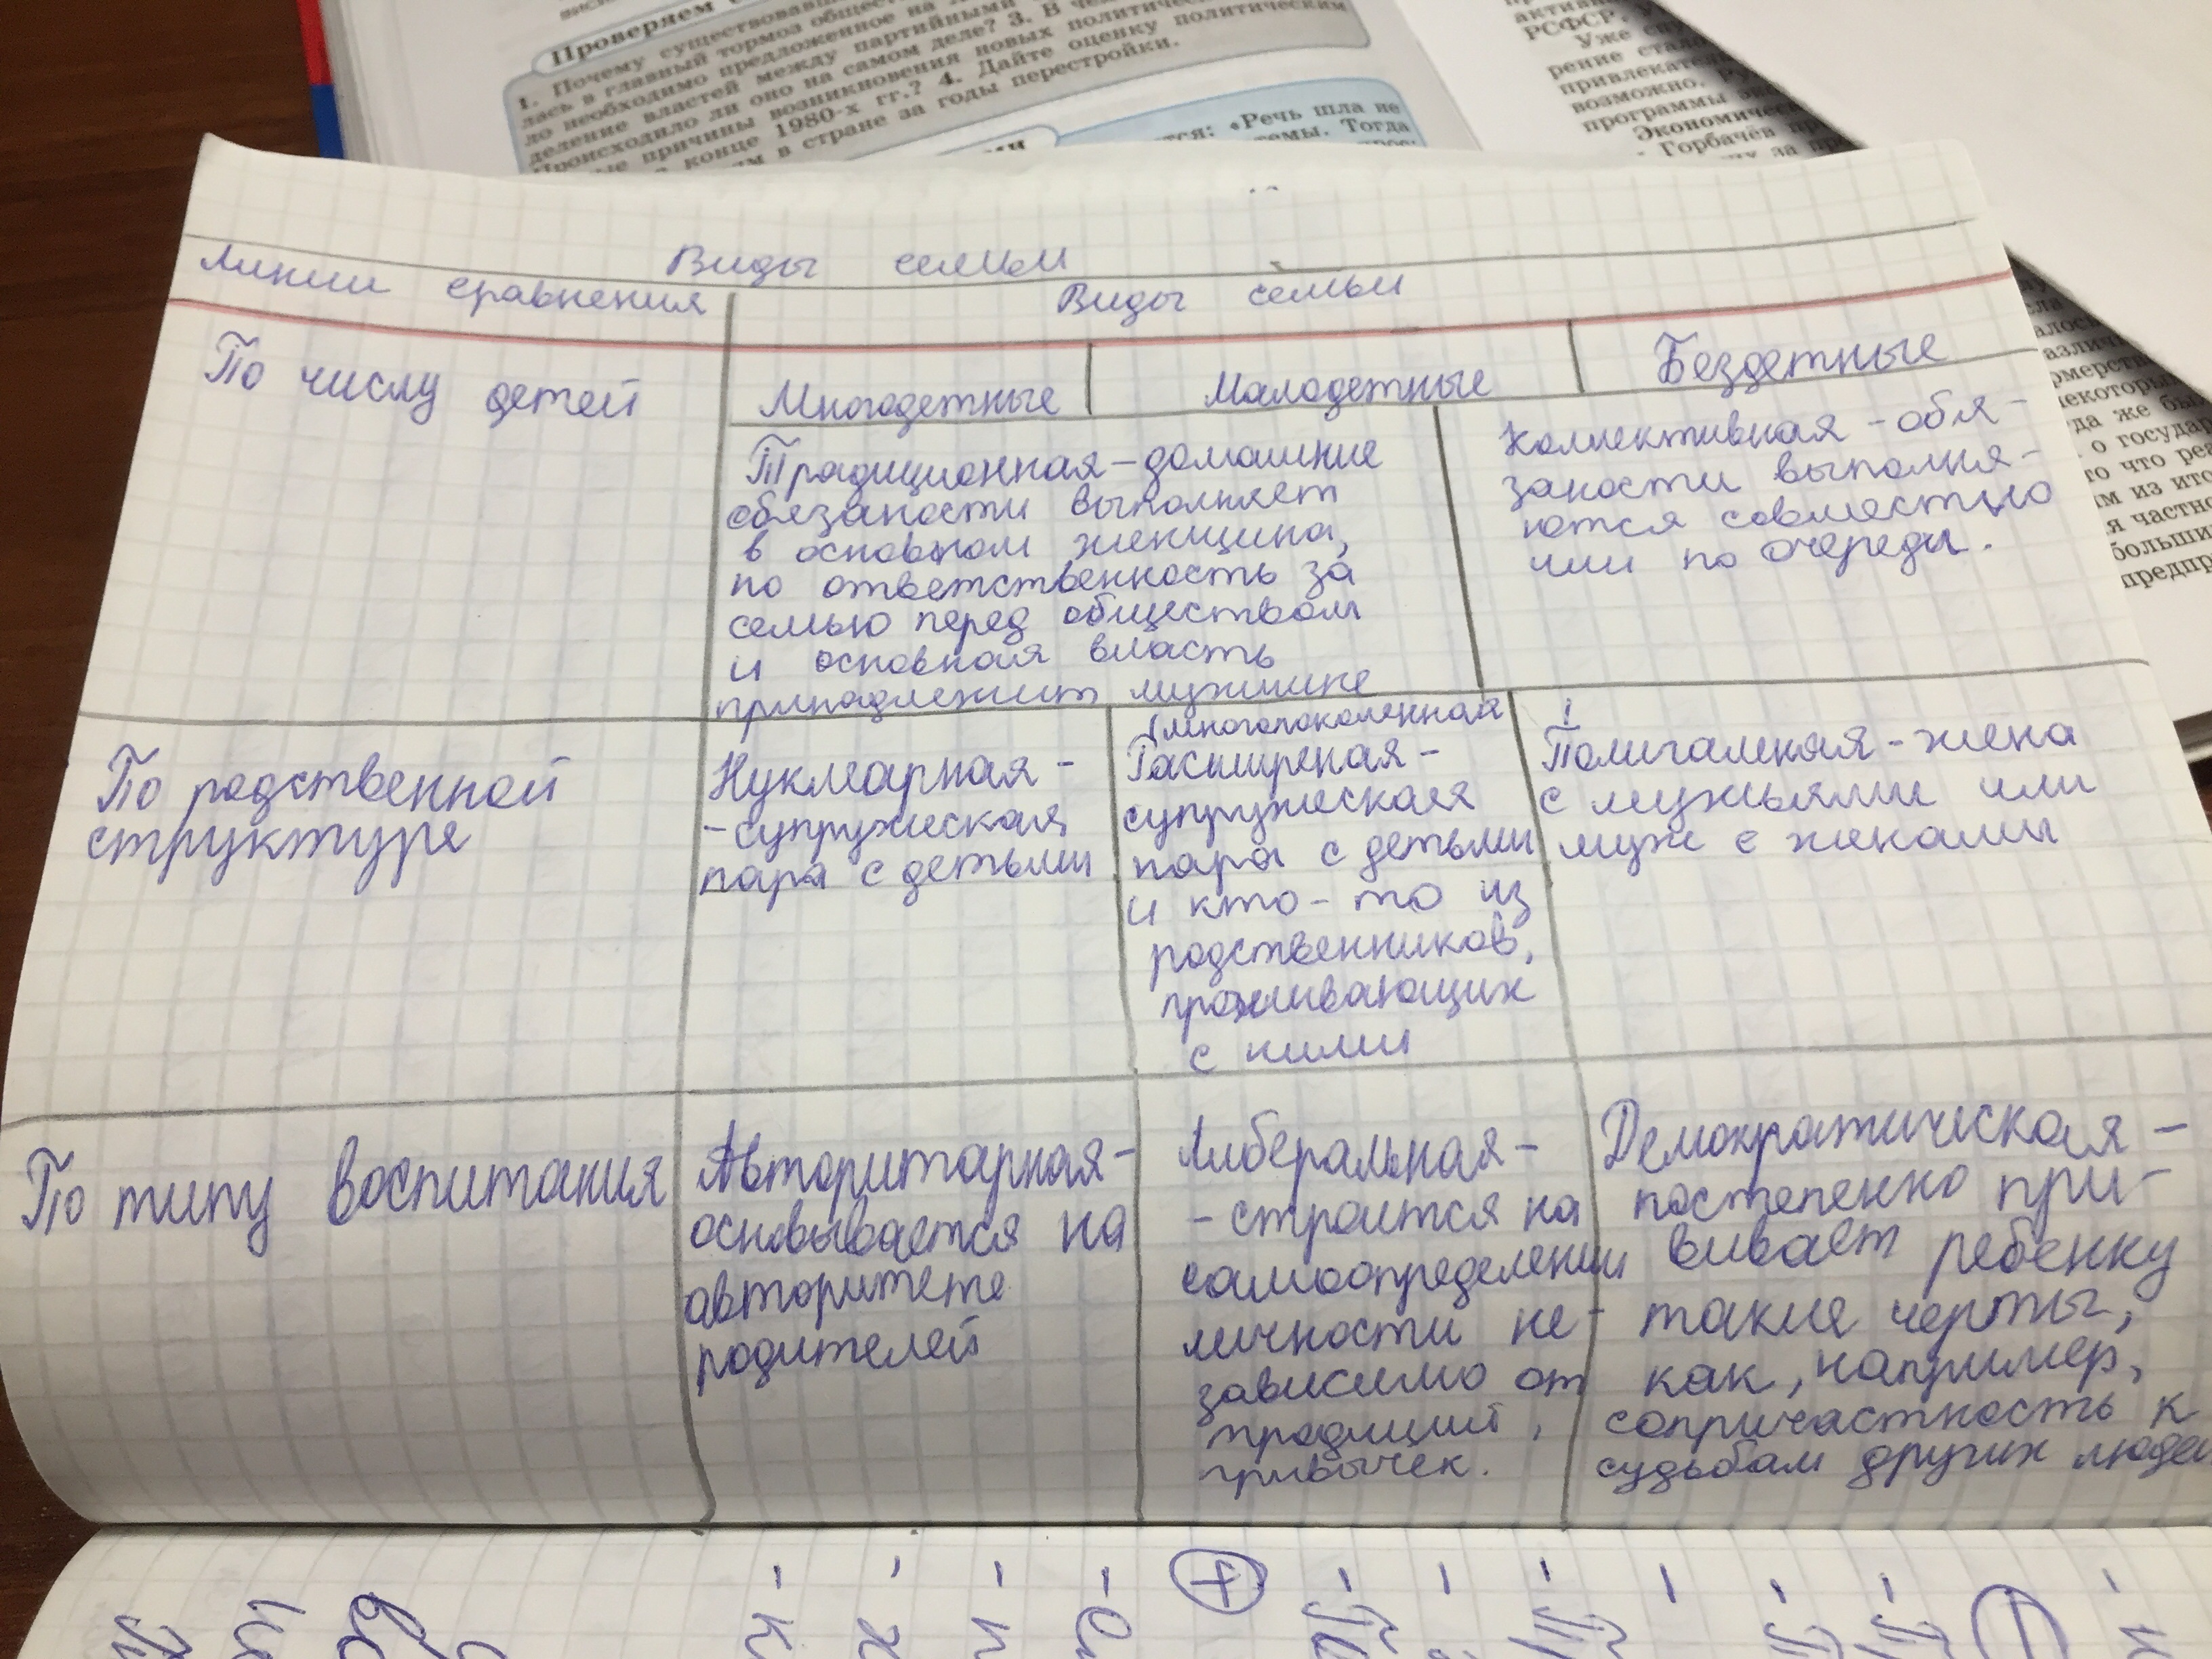 Проверяем
1. Почему существовавш
лась в главный тормоз общес
ло необходимо предложенное на
деление властей между партийными
Происходило ли оно на самом деле? 3. В че
ые причины возникновения новых политичес
конце 1980-х гг.? 4. Дайте оценку политическим
в стране за годы перестройки.
«Речь шла не
Тогда
РСФСР.
Уже
рение
привлекате
возможно.
программы
Экономичес
Горбачёв
Виды семьи
Линии сравнения
Виды семьи
По числу детей
Многодетные
Малодетные
Бездетные
Традиционная – домашние
обязаности выполняет
в основном женщина,
но ответственность за
семью перед обществом
и основная власть
принадлежит мужчине
Коллективная – обя-
заности выполня-
ются совместно
или по очереди.
По родственной
структуре
Нуклеарная –
– супружеская
пара с детьми
(многопоколенная
Расширеная –
супружеская
пара с детьми
и кто-то из
родственников,
проживающих
с ними
Полигамная – жена
с мужьями или
муж с женами
По типу воспитания
Авторитарная –
основывается на
авторитете
родителей
Либеральная –
– строится на
самоопределении
личности не-
зависимо от
традиций,
привычек.
Демократическая –
постепенно при-
вивает ребенку
такие черты,
как, например,
сопричастность к
судьбам других люде